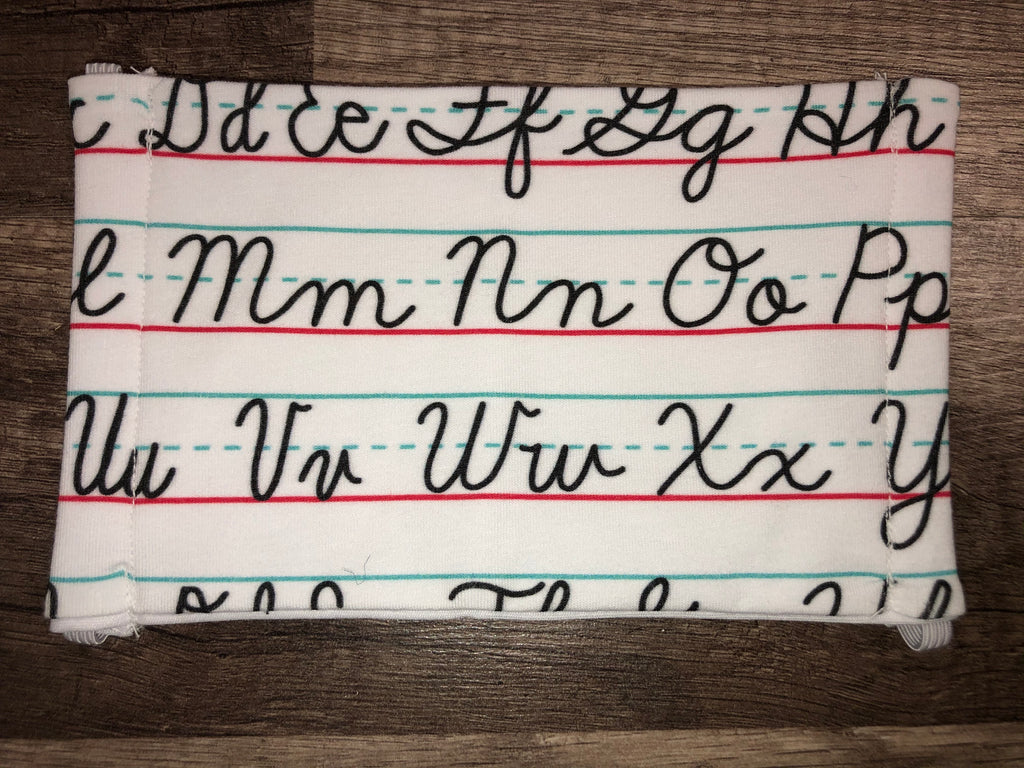 c Dd Ee Ff Gg Hh
l Mm Nn Oo Pp
Uu Vv Ww Xx Y